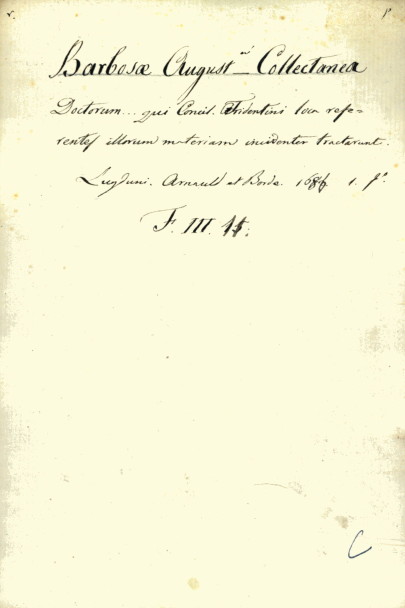 Barbosæ August.ni — Collectanea
Doctorum... qui Concil. Tridentini loca refe=
rentes illorum materiam incidenter tractarunt.
Lugduni. Arnauld et Borde. 1 f.o
F. III.
C